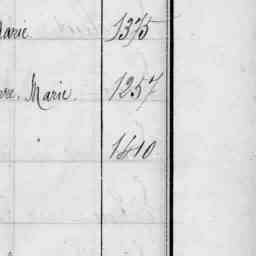 Marie 1375
re, Marie. 1257
1410